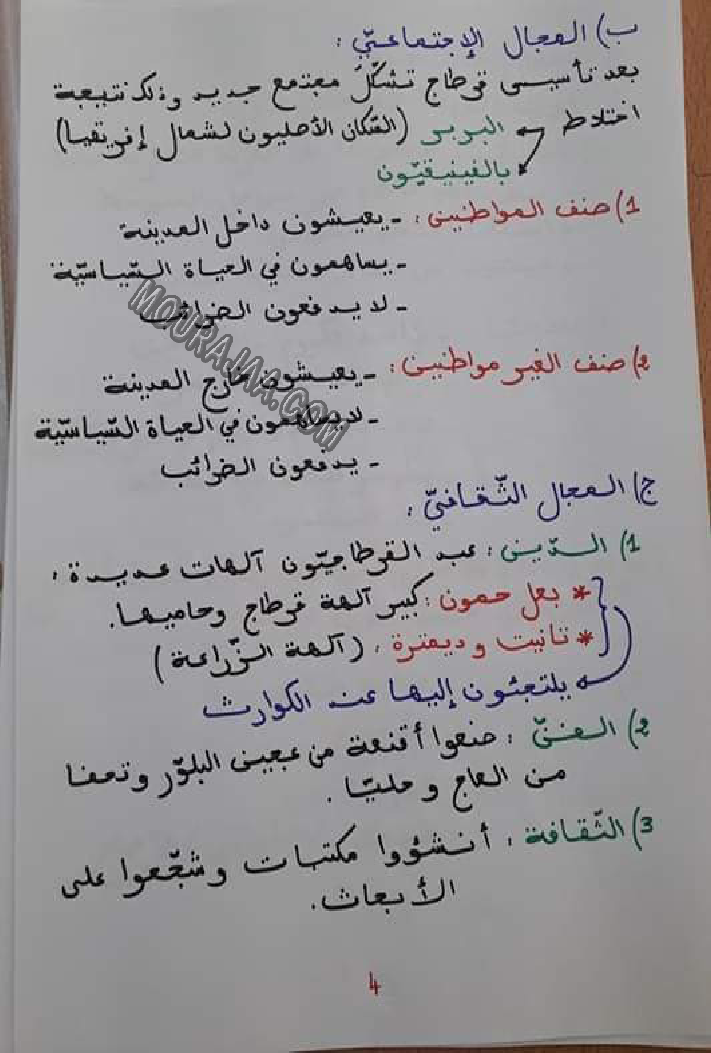 ب) المجال الإجتماعيّ :
بعد تأسيس قرطاج تشكّل مجتمع جديد وذلك نتيجة
اختلاط البربر (السّكان الأصليون لشمال إفريقيا)
بالفينيقيّون
1) صنف المواطنين : - يعيشون داخل المدينة
- يساهمون في الحياة السّياسيّة
- لا يدفعون الضرائب
2) صنف الغير مواطنين : - يعيشون خارج المدينة
- لا يساهمون في الحياة السّياسيّة
- يدفعون الضرائب
MOURAJAA.COM
ج) المجال الثّقافيّ :
1) الدّين : عبد القرطاجيّون آلهات عديدة :
* بعل حمون : كبير آلهة قرطاج وحاميها.
* تانيت وديمترة : (آلهة الزّراعة)
يلتجئون إليها عند الكوارث
2) الفنّ : صنعوا أقنعة من عجين البلّور وتحفا
من العاج وحليّا .
3) الثّقافة : أنشؤوا مكتبات وشجّعوا على
الأبحاث.
4